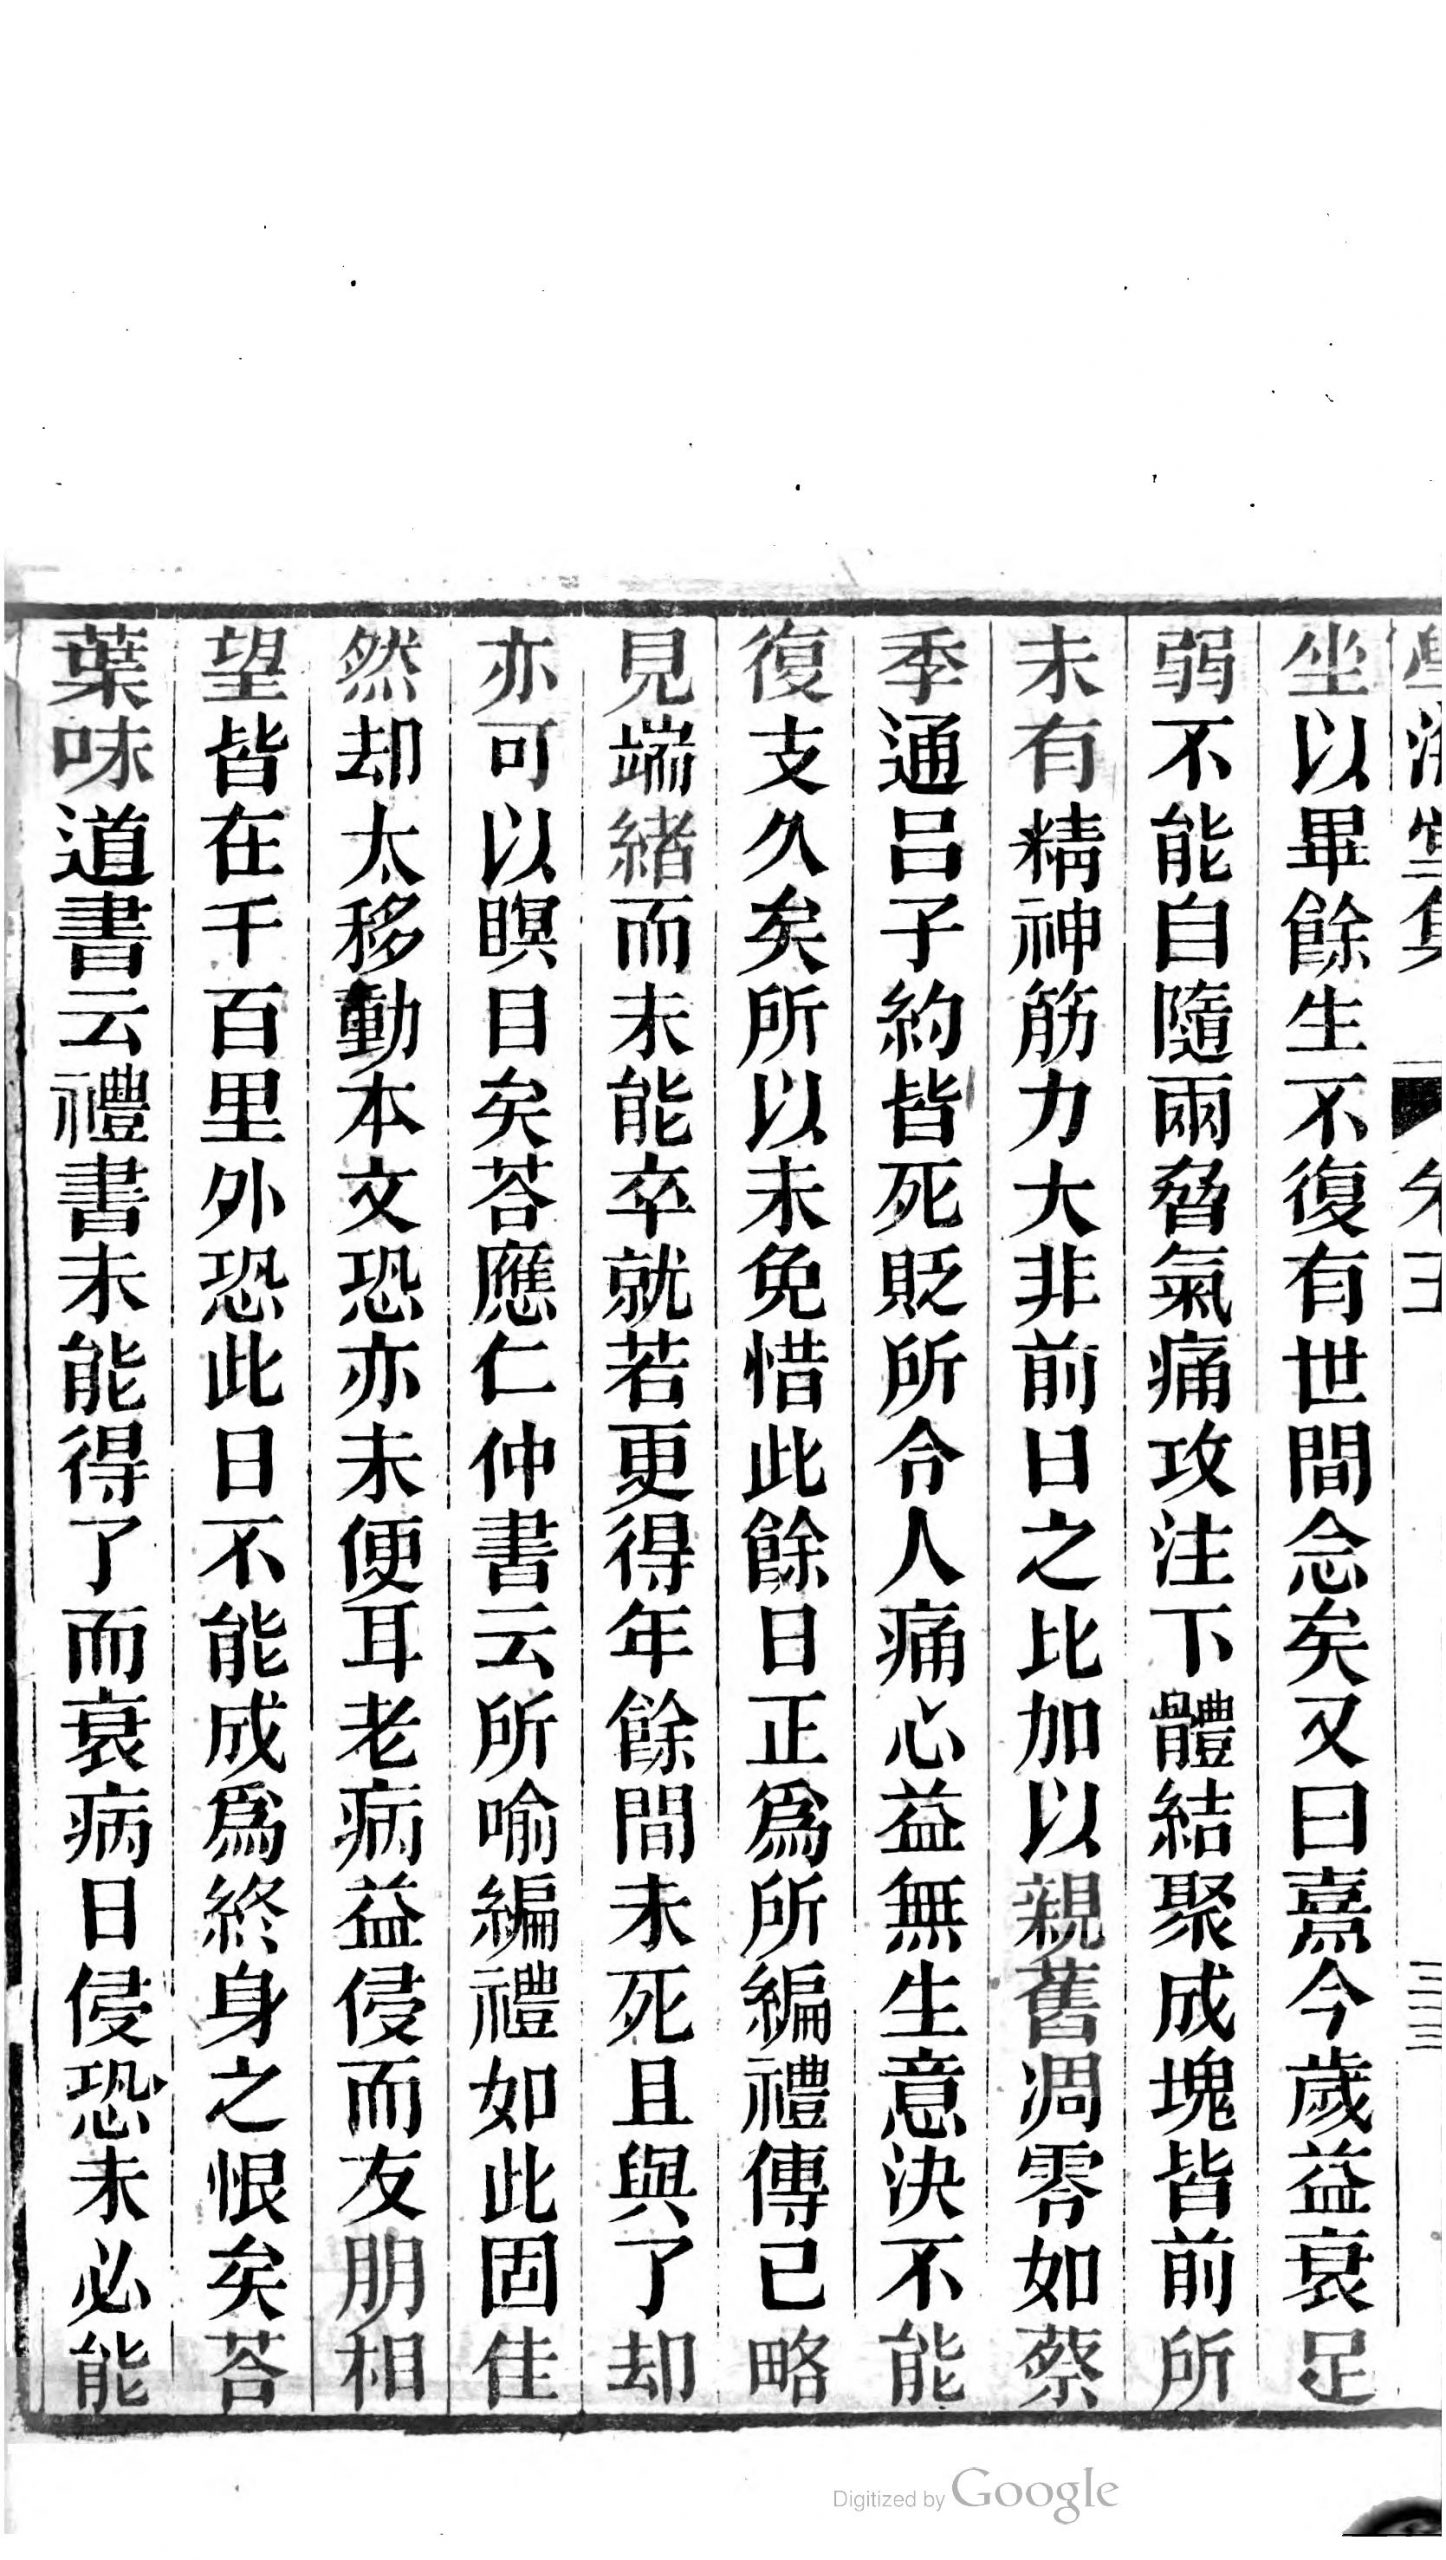 學海堂集 卷三 三三
坐以畢餘生不復有世間念矣又曰熹今歲益衰足
弱不能自隨兩脅氣痛攻注下體結聚成塊皆前所
未有精神筋力大非前日之比加以親舊凋零如蔡
季通呂子約皆死貶所令人痛心益無生意決不能
復支久矣所以未免惜此餘日正爲所編禮傳已略
見端緒而未能卒就若更得年餘間未死且與了却
亦可以瞑目矣荅應仁仲書云所喻編禮如此固佳
然却太移動本文恐亦未便耳老病益侵而友朋相
望皆在千百里外恐此日不能成爲終身之恨矣荅
葉味道書云禮書未能得了而衰病日侵恐未必能
Digitized by Google